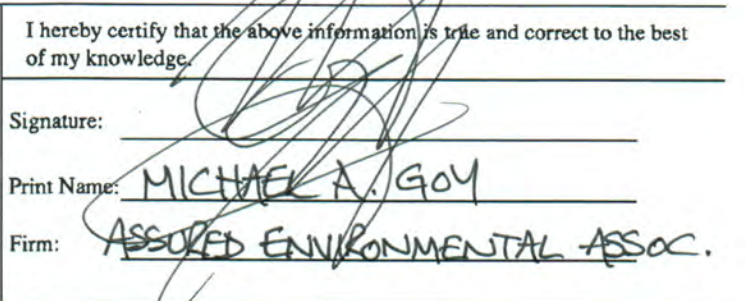 I hereby certify that the above information is true and correct to the best
of my knowledge.
Signature:
Print Name: MICHAEL A. GOY
Firm: ASSURED ENVIRONMENTAL ASSOC.